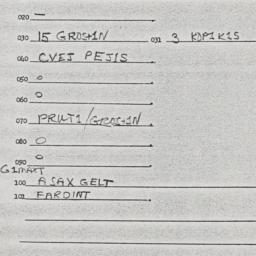 020 —
030 15 GROSHN 031 3 KOPIKIS
040 CVEJ PEJIS
050 0
060 0
070 PRUTI/GROSHN
080 0
090 0
GIMAXT
100 A SAX GELT
101 FARDINT